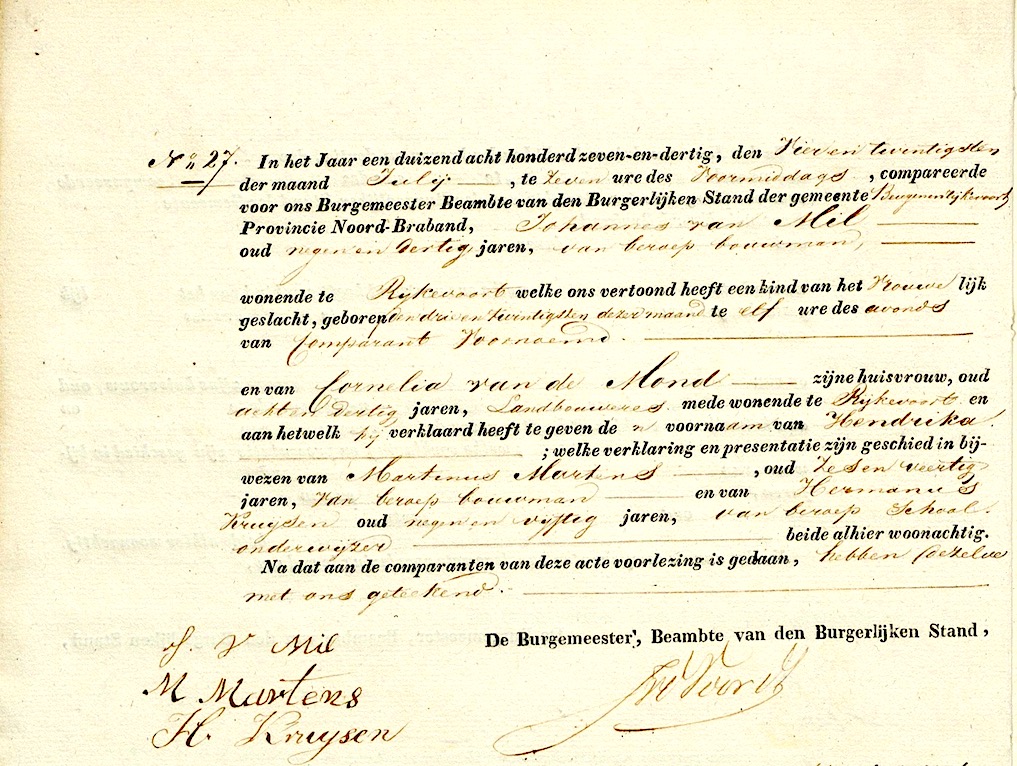 No 27. In het Jaar een duizend acht honderd zeven-en-dertig, den Vier en twintigsten
der maand Julij, te Zeven ure des Voormiddags, compareerde
voor ons Burgemeester Beambte van den Burgerlijken Stand der gemeente
Provincie Noord-Braband, Johannes van Mil
oud negen en dertig jaren, van beroep bouwman,
wonende te Rijkevoort welke ons vertoond heeft een kind van het Vrouwe lijk
geslacht, geboren den drie en twintigsten dezer maand te elf ure des avonds
van Comparant Voornoemd.
en van Cornelia van de Mond zijne huisvrouw, oud
acht en dertig jaren, Landbouweres mede wonende te Rijkevoort en
aan hetwelk hij verklaard heeft te geven de n voornaam van Hendrika.
; welke verklaring en presentatie zijn geschied in bij-
wezen van Martinus Martens, oud Zes en veertig
jaren, van beroep bouwman en van Hermanus
Kruijsen oud negen en vijftig jaren, van beroep School.
onderwijzer beide alhier woonachtig.
Na dat aan de comparanten van deze acte voorlezing is gedaan, hebben dezelve
met ons geteekend.
De Burgemeester, Beambte van den Burgerlijken Stand,
J. V Mil
M Martens
H. Kruysen